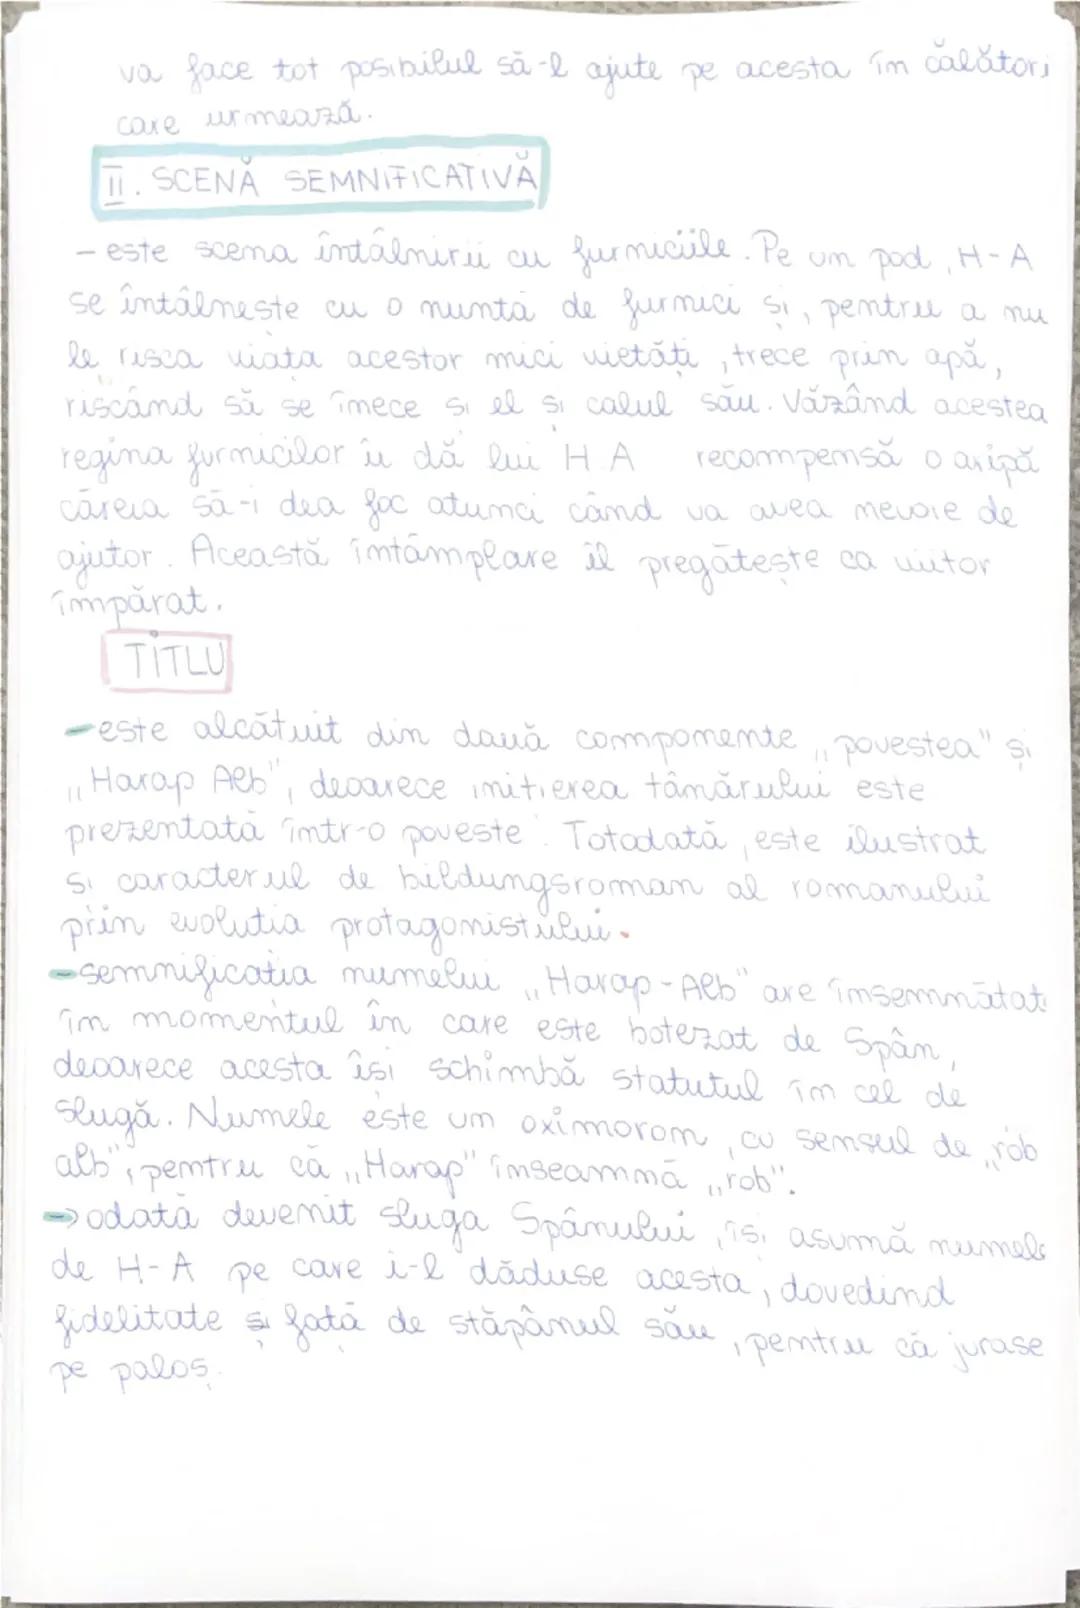 va face tot posibilul să-l ajute pe acesta în călători
care urmează.
II. SCENĂ SEMNIFICATIVĂ
- este scena întâlnirii cu furniciile. Pe un pod, H-A
se întâlnește cu o nuntă de furnici și, pentru a nu
le risca viața acestor mici vietăți, trece prin apă,
riscând să se înece și el și calul său. Văzând acestea
regina furnicilor îi dă lui H A recompensă o aripă
căreia să-i dea foc atunci când va avea nevoie de
ajutor. Această întâmplare îl pregătește ca viitor
împărat.
TITLU
- este alcătuit din două componente „povestea" și
„Harap Alb", deoarece inițierea tânărului este
prezentată într-o poveste. Totodată, este ilustrat
și caracterul de bildungsroman al romanului
prin evoluția protagonistului.
- semnificația numelui „Harap-Alb" are însemnătate
în momentul în care este botezat de Spân,
deoarece acesta își schimbă statutul în cel de
slugă. Numele este un oximoron, cu sensul de „rob
alb", pentru că „Harap" înseamnă „rob".
→ odată devenit sluga Spânului, își asumă numele
de H-A pe care i-l dăduse acesta, dovedind
fidelitate și față de stăpânul său, pentru că jurase
pe paloș.